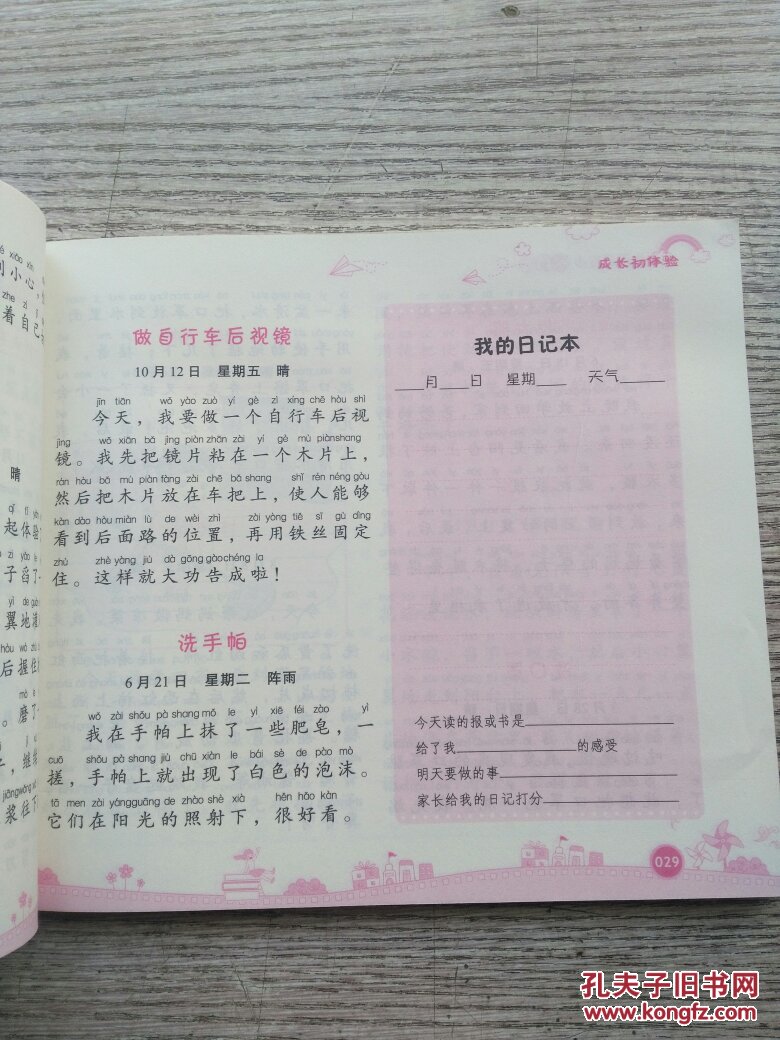 成长初体验
做自行车后视镜
10月12日 星期五 晴
jīn tiān wǒ yào zuò yí gè zì xíng chē hòu shì
今天，我要做一个自行车后视
jìng wǒ xiān bǎ jìng piàn zhān zài yí gè mù piàn shang
镜。我先把镜片粘在一个木片上，
rán hòu bǎ mù piàn fàng zài chē bǎ shang shǐ rén néng gòu
然后把木片放在车把上，使人能够
kàn dào hòu miàn lù de wèi zhì zài yòng tiě sī gù dìng
看到后面路的位置，再用铁丝固定
zhù zhè yàng jiù dà gōng gào chéng la
住。这样就大功告成啦！
洗手帕
6月21日 星期二 阵雨
wǒ zài shǒu pà shang mǒ le yì xiē féi zào yì
我在手帕上抹了一些肥皂，一
cuō shǒu pà shang jiù chū xiàn le bái sè de pào mò
搓，手帕上就出现了白色的泡沫。
tā men zài yáng guāng de zhào shè xià hěn hǎo kàn
它们在阳光的照射下，很好看。
我的日记本
____月____日 星期____ 天气______
今天读的报或书是____________________
给了我________________的感受
明天要做的事________________________
家长给我的日记打分__________________
029
xiǎo xīn
小心，
zhe zì
着自己
晴
起体验
zi
子舀了一
翼地灌
hòu wò zhù
后握住
磨了
，继续
浆往下
孔夫子旧书网
www.kongfz.com